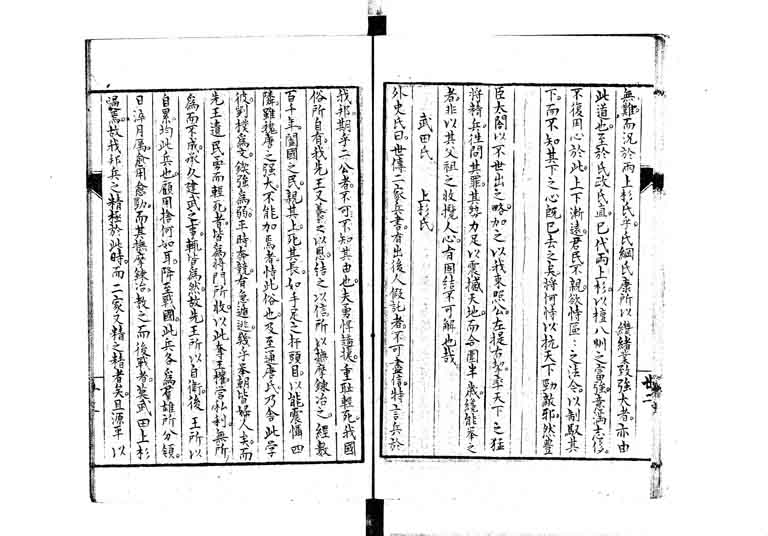 無難。而况於兩上杉氏乎。氏綱氏康所以繼緒業致強大者。亦由
此道也。至於氏政氏直。已代兩上杉。以擅八州之富強。意滿志侈。
不復用心於此。上下漸遠。君民不親。欲恃區々之法令。以制馭其
下。而不知其下之心既已去之矣。將何恃以抗天下勁敵耶。然豊
臣太閤以不世出之略。加之以我東照公。左提右挈。率天下之猛
將精兵。往問其罪。其勢力足以震撼天地。而合圍半歳。纔能擧之
者。非以其父祖之收攬人心。有固結不可解也哉。
武田氏 上杉氏
外史氏曰。世傳二家兵書。有出後人假託者。不可盡信。特言兵於
我邦。期乎二公者。不可不知其由也。夫勇悍踏援。重恥輕死。我國
俗所自有。我先王又養之以恩。結之以信。所以撫摩錬冶之。經數
百十年。闔國之民。親其上。死其長。如手足之扞頭目。以能震懾四
隣。雖隋唐之強大。不能加焉者。恃此俗也。及至通唐氏。乃舍此學
彼。剗樸爲文。鑠強爲弱。平時奔競。有急遁逃。幾乎。奉朝皆婦人矣。而
先王遺民。勇而輕死者。皆爲將門所收。以此奉王權。營私利。無所
爲而不成。承久建武之事。輒皆爲然。故先王所以自衛。後王所以
自累。均此兵也。顧用捨何如耳。降至戰國。此兵各爲群雄所分領。
日淬月厲。愈用愈勁。而其撫摩錬冶。教之而後戰者。莫武田上杉
過焉。故我邦兵之精。極於此時。而二家又精之精者矣。且源平以